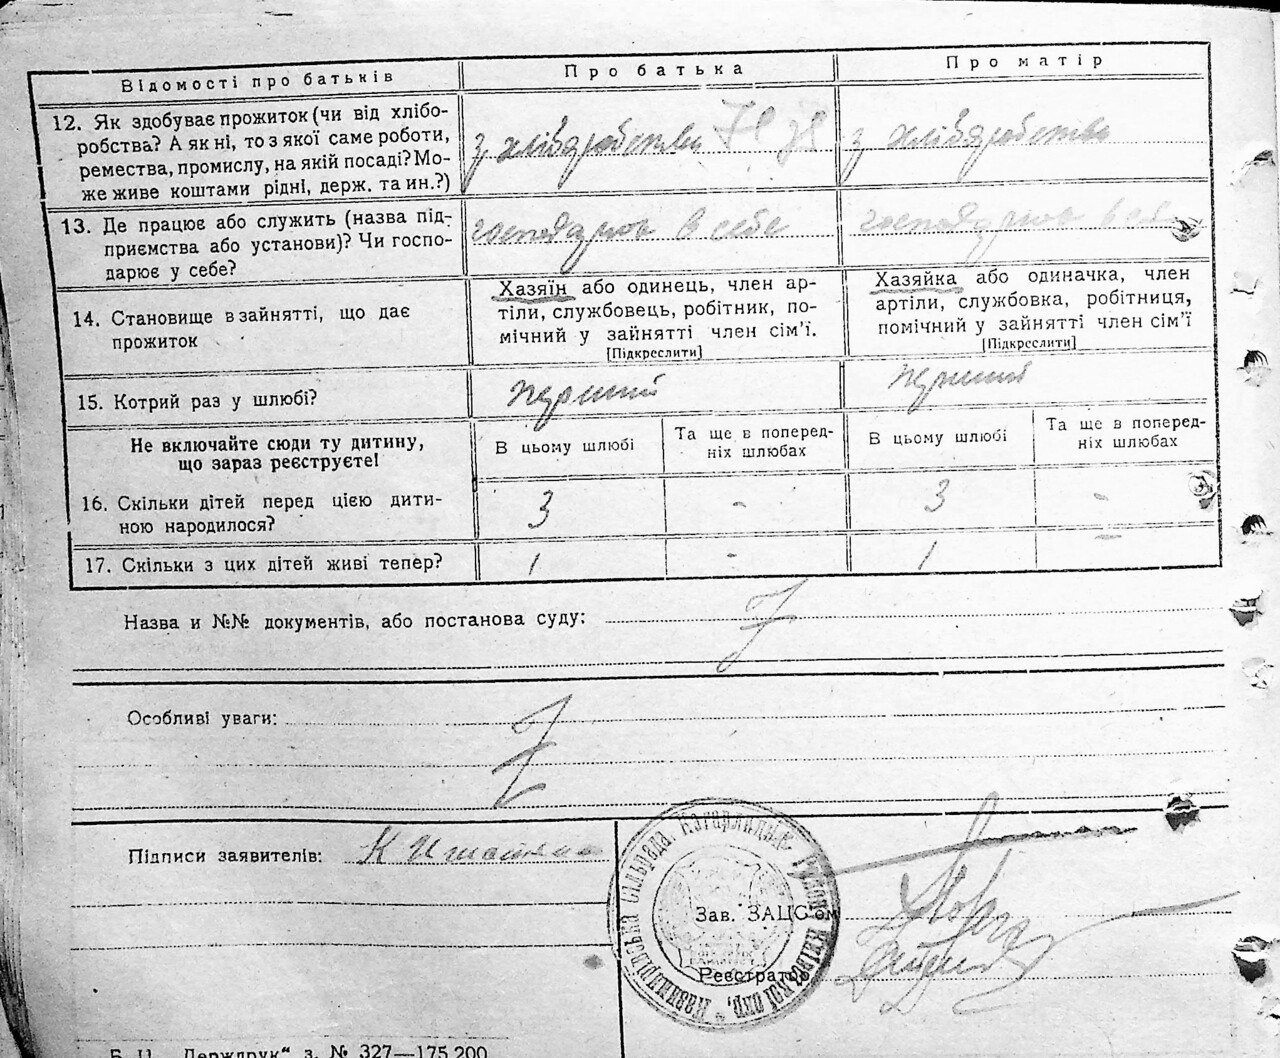 Відомості про батьків
Про батька
Про матір
12. Як здобуває прожиток (чи від хлібо-
робства? А як ні, то з якої саме роботи,
ремества, промислу, на якій посаді? Мо-
же живе коштами рідні, держ. та ин.?)
з хліборобства
з хліборобства
13. Де працює або служить (назва під-
приємства або установи)? Чи госпо-
дарює у себе?
господарює в себе
господарює в себе
14. Становище в зайнятті, що дає
прожиток
Хазяїн або одинець, член ар-
тіли, службовець, робітник, по-
мічний у зайнятті член сім’ї.
[Підкреслити]
Хазяйка або одиначка, член
артіли, службовка, робітниця,
помічний у зайнятті член сім’ї
[Підкреслити]
15. Котрий раз у шлюбі?
перший
перший
Не включайте сюди ту дитину,
що зараз реєструєте!
В цьому шлюбі
Та ще в поперед-
ніх шлюбах
В цьому шлюбі
Та ще в поперед-
ніх шлюбах
16. Скільки дітей перед цією дити-
ною народилося?
3 - 3 -
17. Скільки з цих дітей живі тепер?
1 - 1 -
Назва и №№ документів, або постанова суду:
Особливі уваги:
Підписи заявителів:
Зав. ЗАЦС’ом
Реєстратор
сільрада Кагарлицьк.
Б. Ц. „Держдрук“ з. № 327—175.200